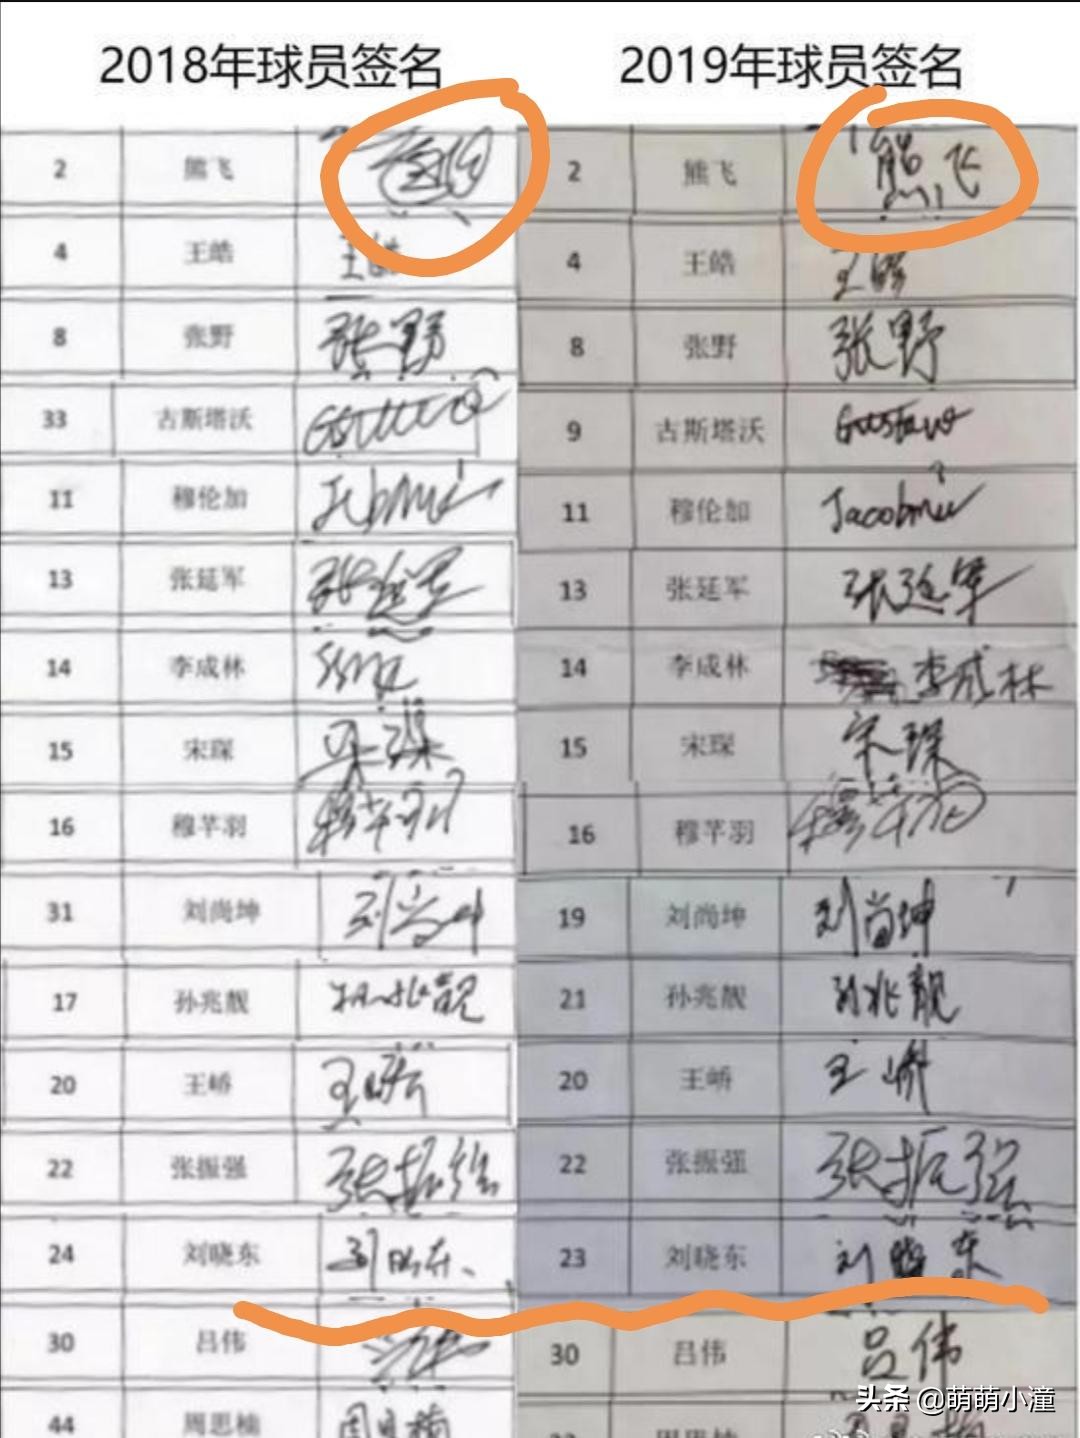 2018年球员签名 2019年球员签名
2 熊飞 2 熊飞 熊飞
4 王皓 王皓 4 王皓 王皓
8 张野 张野 8 张野 张野
33 古斯塔沃 9 古斯塔沃 Gustavo
11 穆伦加 11 穆伦加 Jacobmu
13 张延军 张延军 13 张廷军 张延军
14 李成林 14 李成林 李成林
15 宋琛 宋琛 15 宋琛 宋琛
16 穆芊羽 穆芊羽 16 穆芊羽
31 刘尚坤 刘尚坤 19 刘尚坤 刘尚坤
17 孙兆靓 孙兆靓 21 孙兆靓 孙兆靓
20 王峤 20 王峤 王峤
22 张振强 张振强 22 张振强 张振强
24 刘晓东 刘晓东 23 刘晓东 刘晓东
30 吕伟 30 吕伟 吕伟
44 周思楠 周思楠
头条 @萌萌小潼